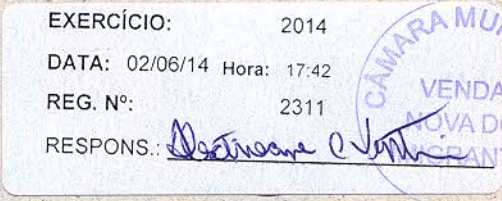 EXERCÍCIO: 2014
DATA: 02/06/14 Hora: 17:42
REG. Nº: 2311
RESPONS.:
CÂMARA MU
VENDA
NOVA DO